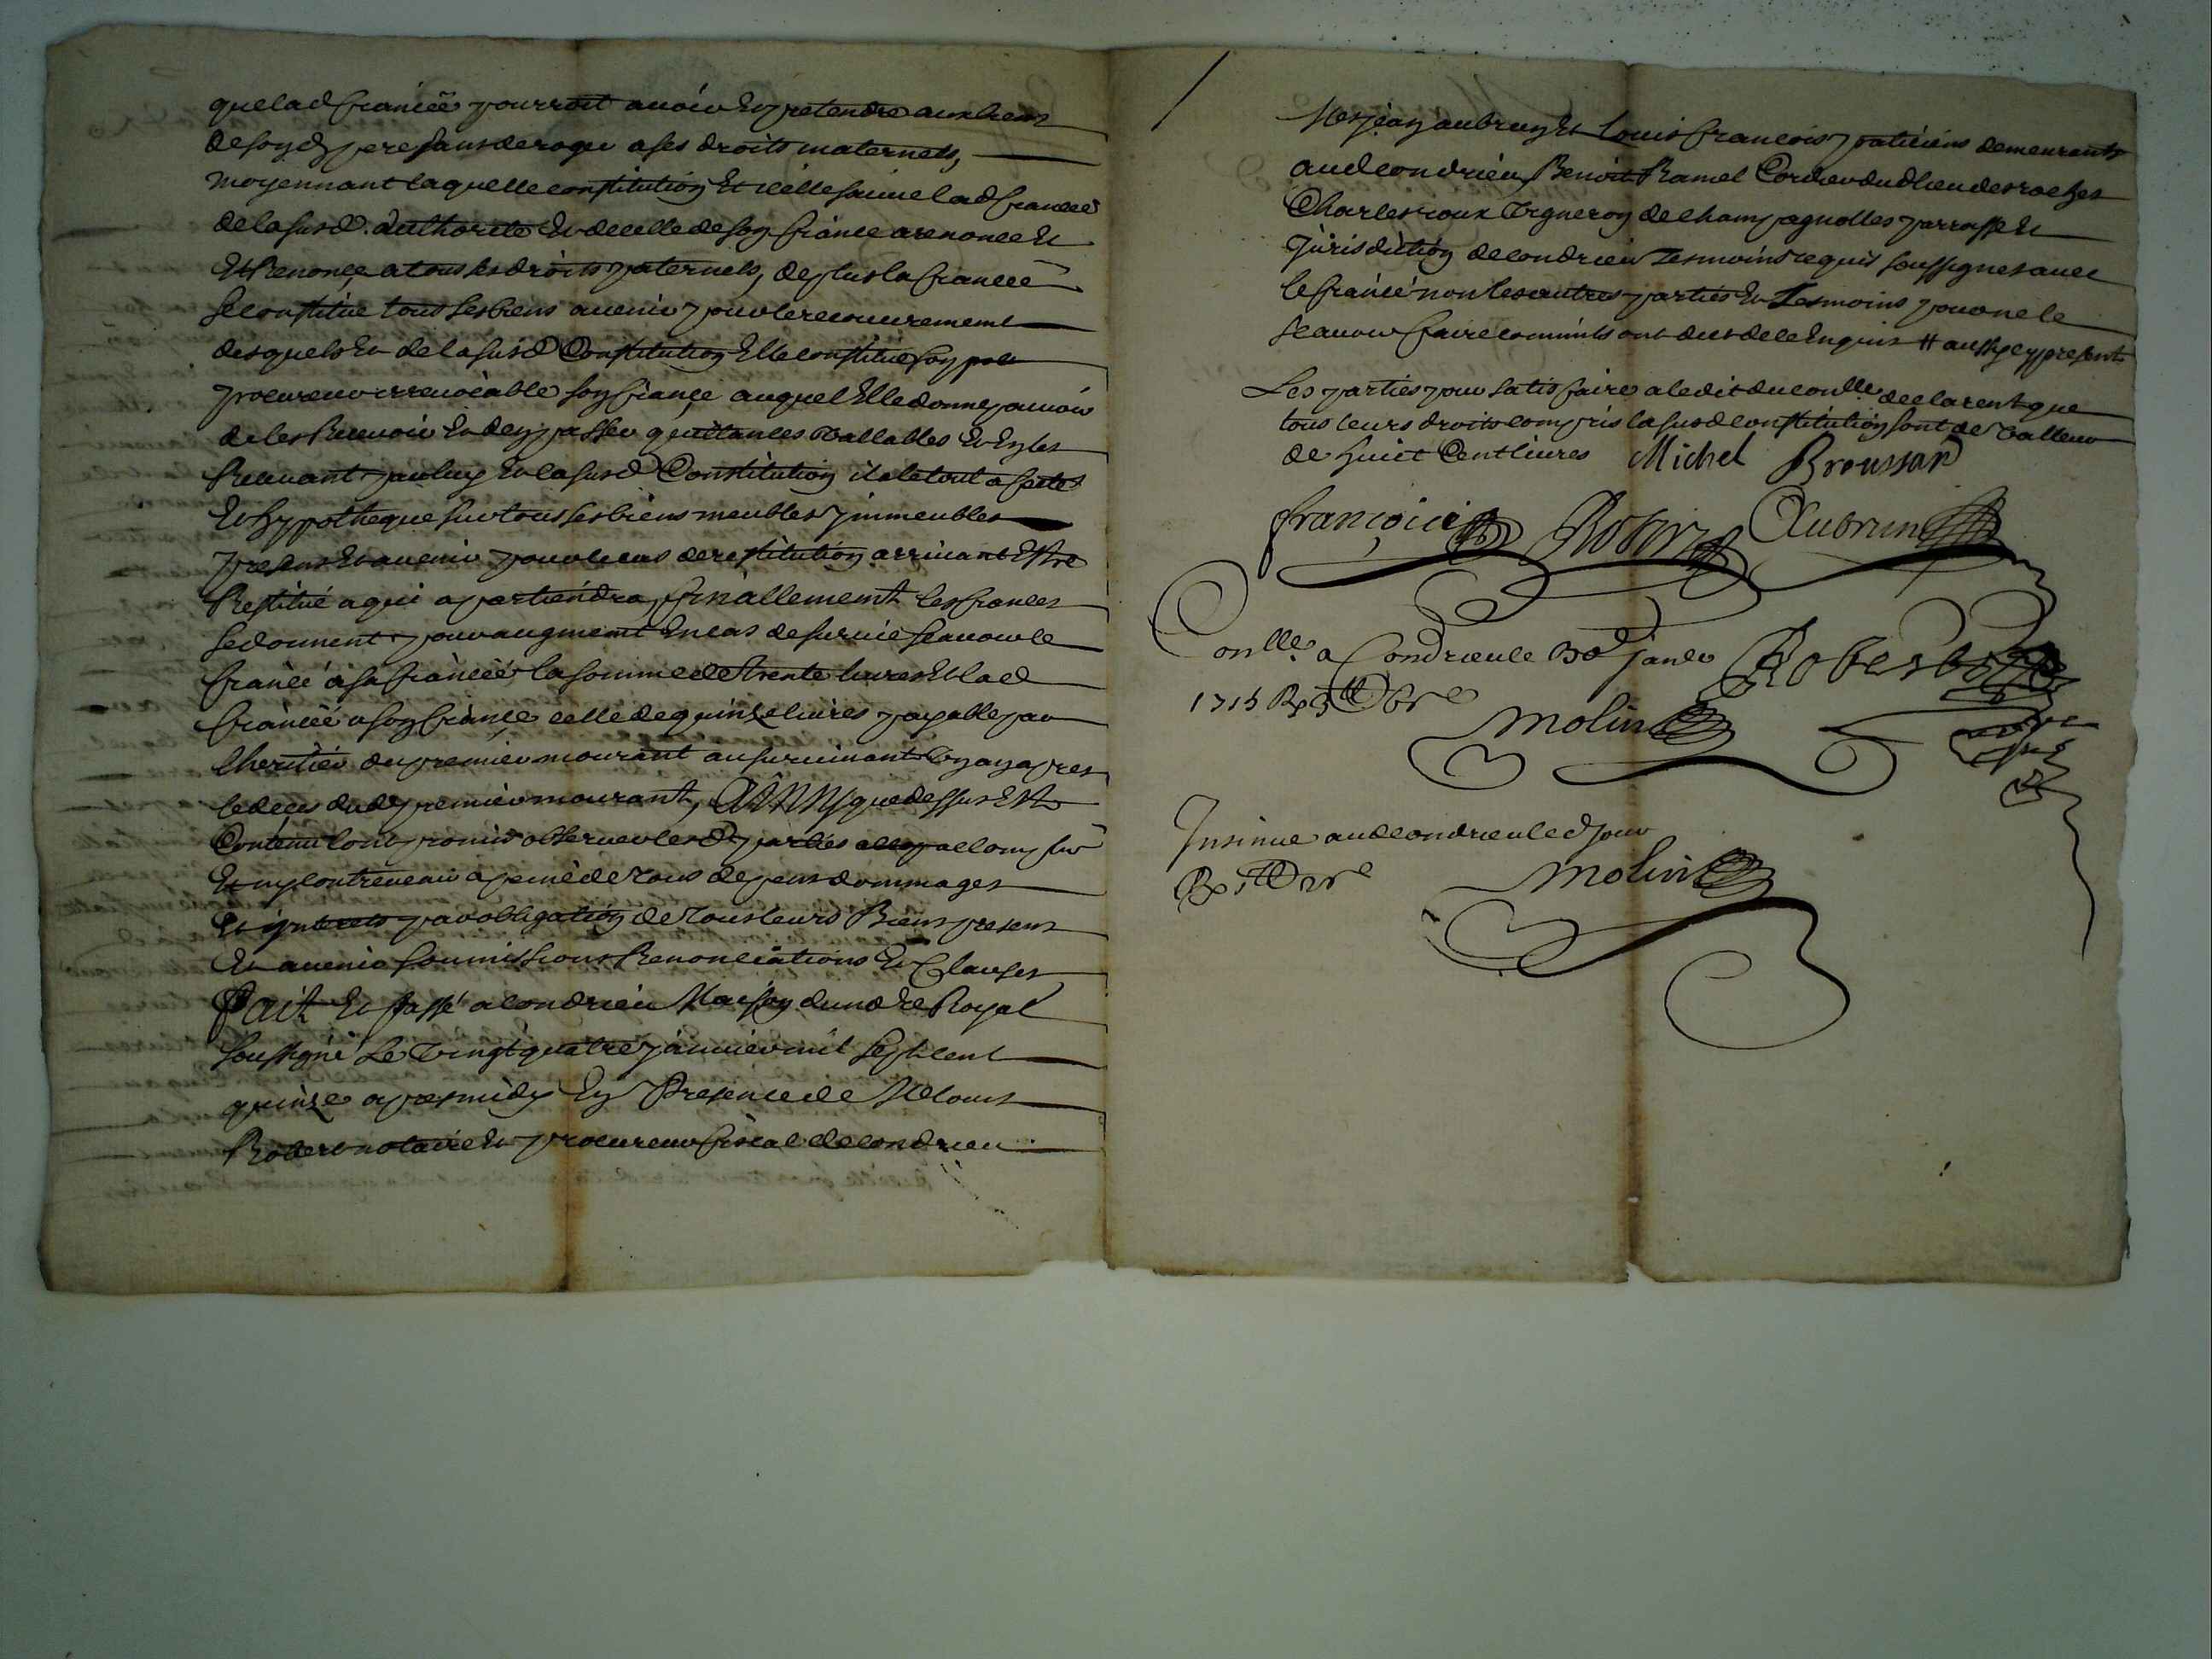 que lad fiancée pourroit avoir et pretendre aux biens
de sond pere sans deroger a ses droits maternels,
moyennant laquelle constitution et icelle suivie lad fiancée
de la susd. authorité et de celle de son fiancé a renoncé et
et Renonce a tous ses droits paternels, de plus la fiancée
se constitue tous ses biens avenir pour le recouvrement
desquels et de la susd Constitution Elle constitue son
procureur irrevocable son fiancé auquel Elle donne pouvoir
de les Recevoir et den passer quittances vallables et En les
Recevant par luy et la susd Constitution il a le tout
et hypotheque sur tous ses biens meubles immeubles
presens et avenir pour le cas de restitution arrivant Estre
Restitué a qui apartiendra, finallement les fiancés
se donnent pour augment en cas de survie scavoir le
fiancé a sa fiancée la somme de trente livres et lad
fiancée a son fiancé celle de quinze livres payable par
lheritier du premier mourant au survivant un an apres
le deces dud premier mourant, Ainsy que dessus Est
Contenu l'ont promis observer lesd parties
et ny contrevenir a peine de tous depens dommages
et interets par obligation de tous leurs Biens presens
et avenir soumissions Renonciations et Clauses
Fait et passé a condrieu Maison du nore Royal
soussigné Le vingt quatre janvier mil sept cent
quinze apres midy En Presence de Me Louis
Robert notaire et procureur fiscal de condrieu
Mes jean aubrun et Louis francois praticiens demeurants
aud condrieu Benoit Ramel Cordier dud lieu des roches
Charles roux vigneron de champagnolles parroisse et
jurisdiction de condrieu Tesmoins requis soussignes avec
le fiancé non les autres parties et Tesmoins pour ne le
scavoir faire comm'ils ont dit de ce Enquis # aussy cy present
Les parties pour satisfaire a ledit du conlle declarent que
tous leurs droits compris la susd constitution sont de valleur
de huict Cent livres Michel Broussard
françois Robert Aubrun
Conlle a Condrieu le 30e janer Robert
1715
Molin
Insinué aud condrieu led jour
Molin